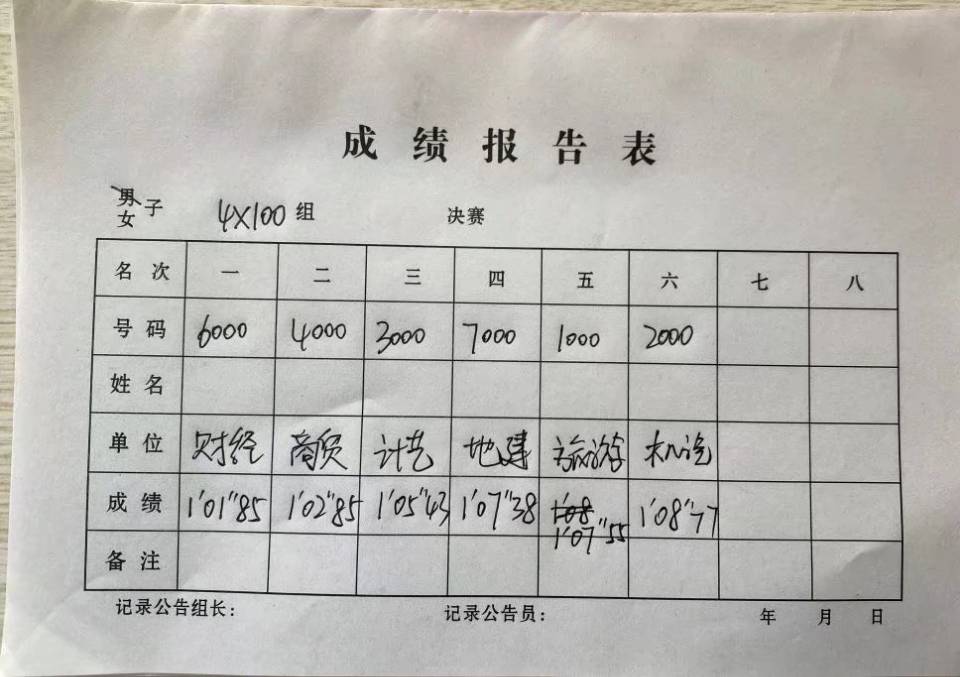 成绩报告表
男
女 子 4X100 组 决赛
名次 一 二 三 四 五 六 七 八
号码 6000 4000 3000 7000 1000 2000
姓名
单位 财经 商贸 计艺 地建 旅游学 机汽
成绩 1'01"85 1'02"85 1'05"43 1'07"38 1'08 1'08"77
1'07"55
备注
记录公告组长: 记录公告员: 年 月 日